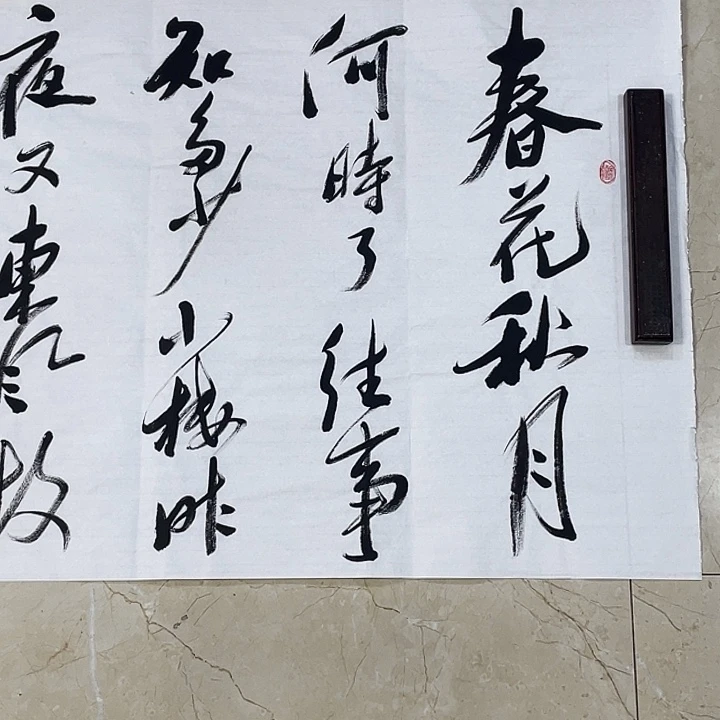 春花秋月
何時了往事
知多少小楼昨
夜又東风故